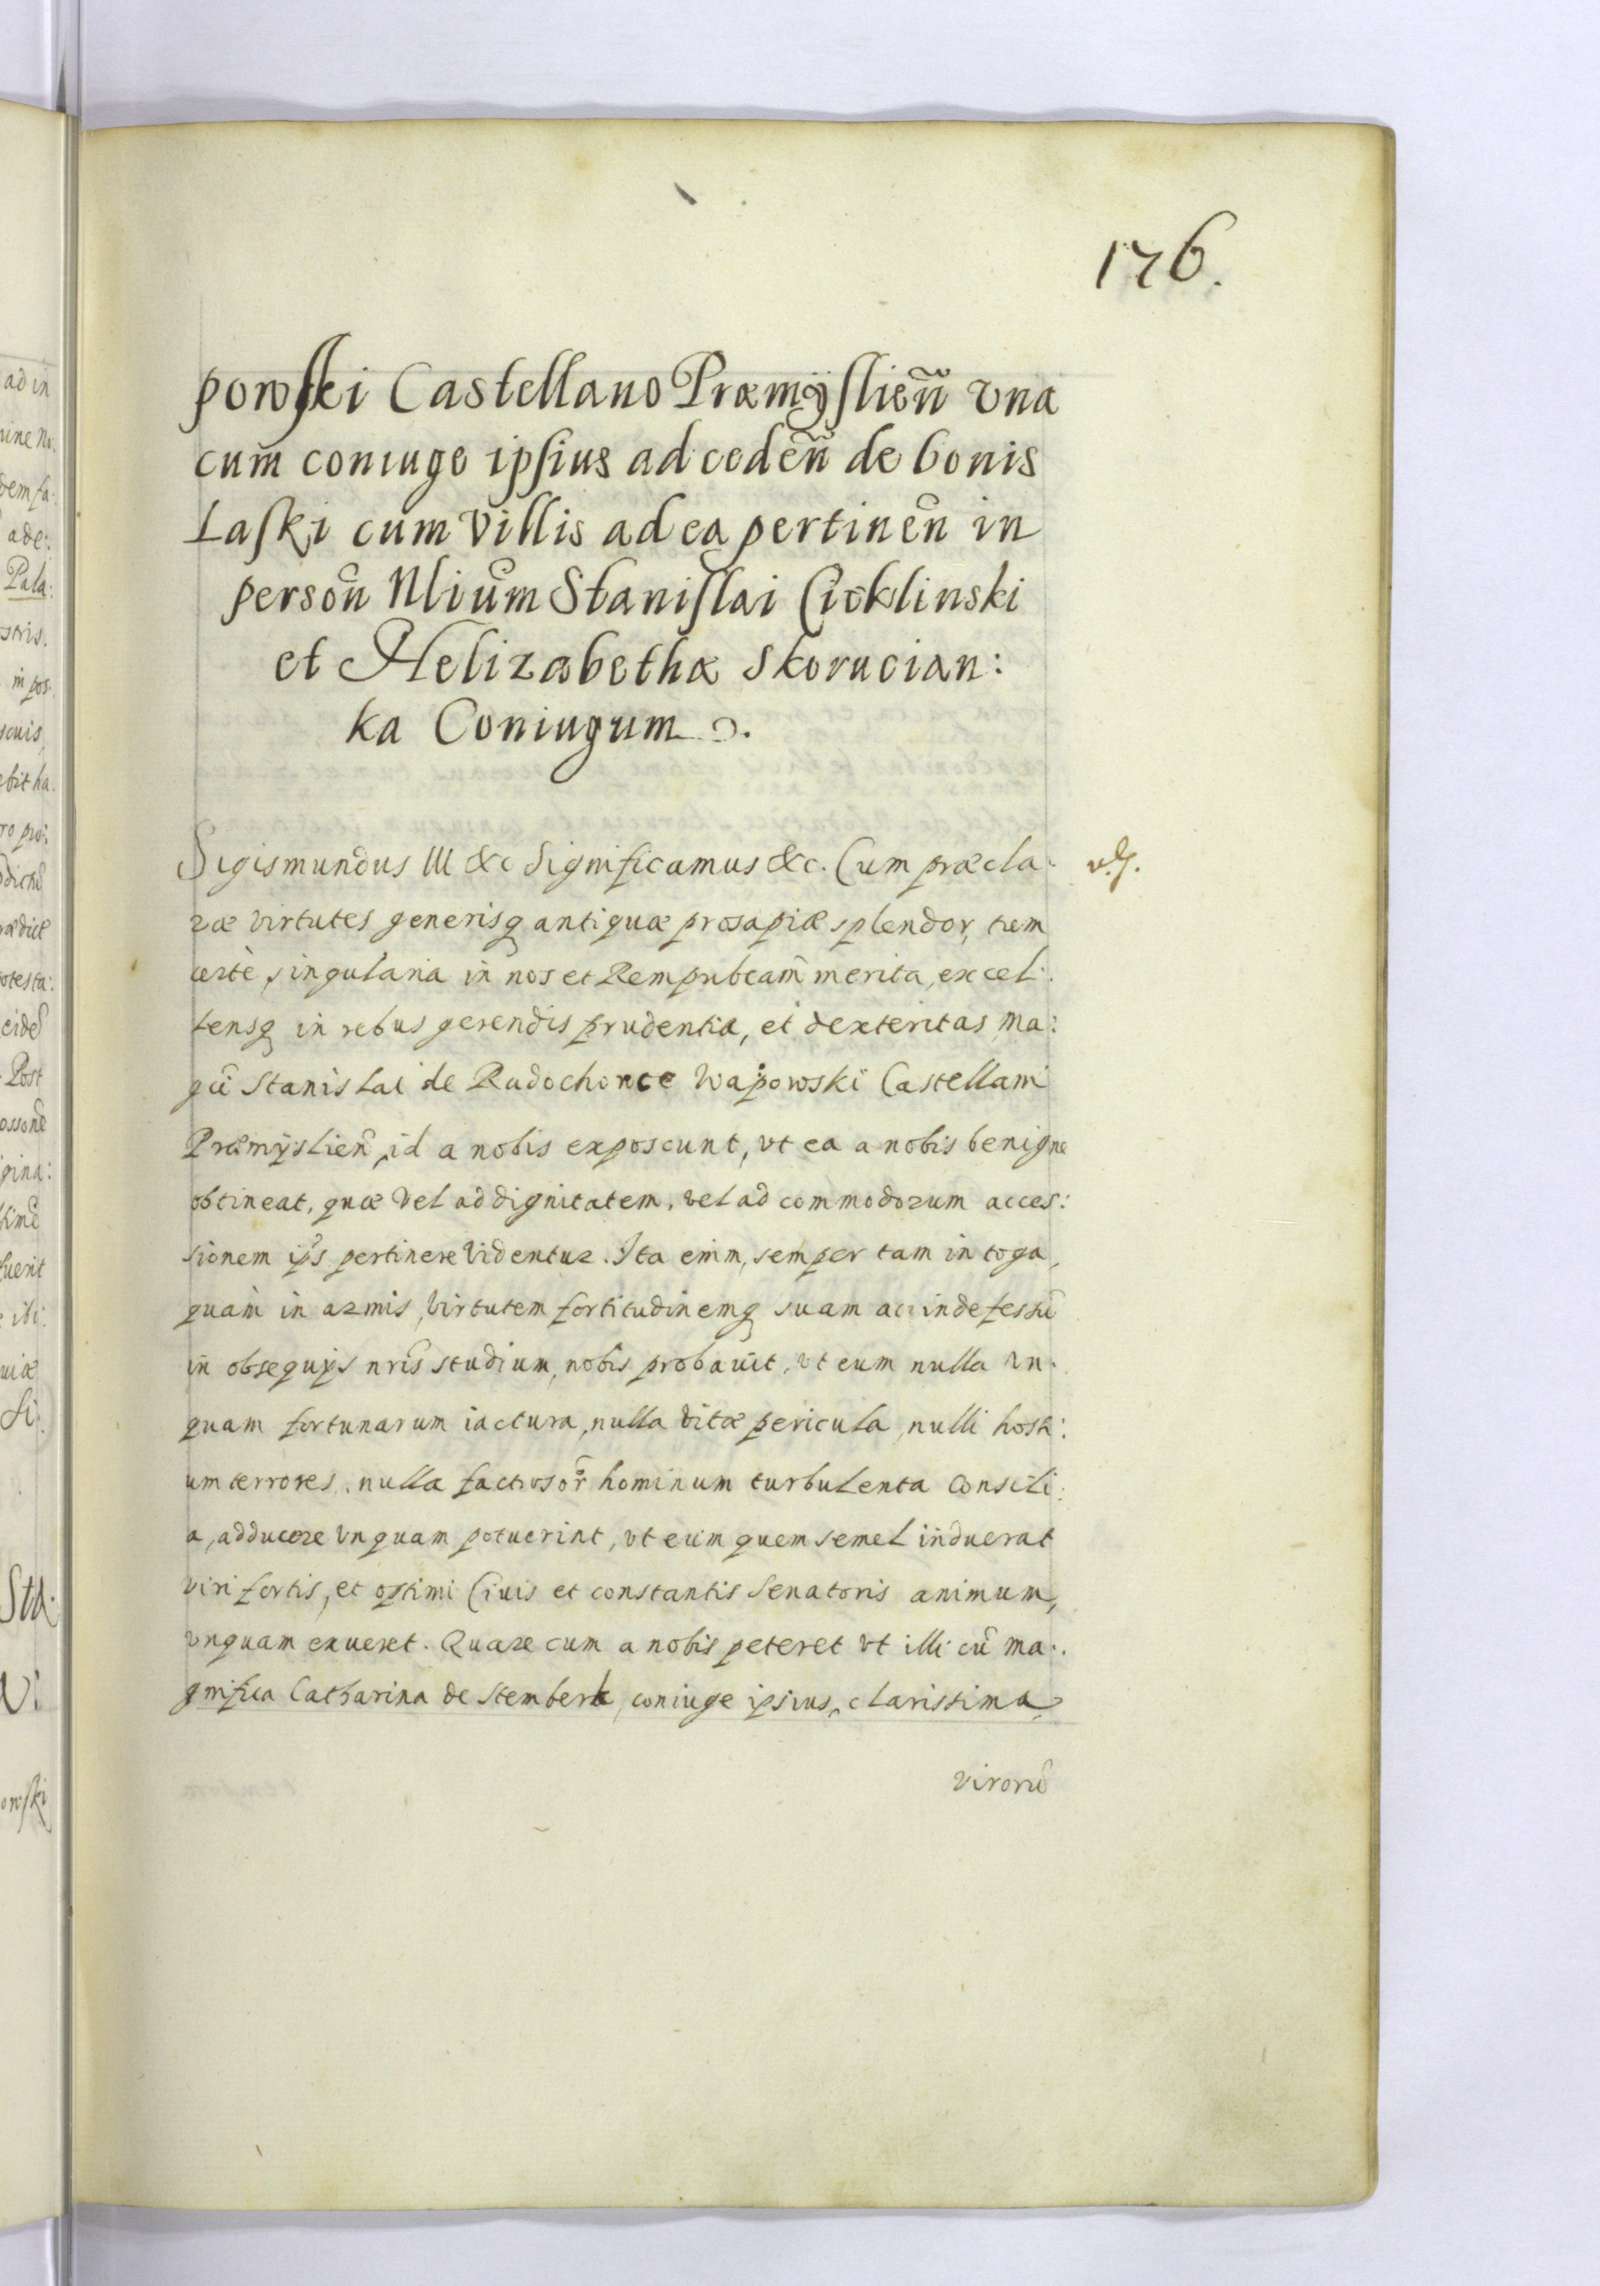 176.
powski Castellano Præmÿslien̄ vna
cum coniuge ipsius ad ceden̄ de bonis
Laski cum Villis ad ea pertinen̄ in
person̄ Nlium̄ Stanislai Cieklinski
et Helizabethæ Skorucian:
ka Coniugum.
Sigismundus III &c Significamus &c. Cum præcla:
ræ virtutes generisq antiquæ prosapiæ splendor, tum
certè singularia in nos et Rempubcam̄ merita, excel:
lensq in rebus gerendis prudentia, et dexteritas Ma:
gci Stanislai de Radochonce Wapowski Castellani
Præmÿslien̄, id a nobis exposcunt, vt ea a nobis benigne
obtineat, quæ vel ad dignitatem, vel ad commodorum acces:
sionem ip̄s pertinere videntur. Ita enim, semper tam in toga,
quam in armis, virtutem fortitudinemq suam ac indefessū
in obsequijs nr̄is studium, nobis probauit, vt eum nulla vn:
quam fortunarum iactura, nulla vitæ pericula, nulli hosti:
um terrores, nulla factiosor̄ hominum turbulenta consili:
a, adducere vnquam potuerint, vt eum quem semel induerat
viri fortis, et optimi Ciuis et constantis Senatoris animum,
vnquam exueret. Quare cum a nobis peteret vt illi cū Ma:
gnifica Catharina de Stemberk, coniuge ipsius, clarissima
virorū